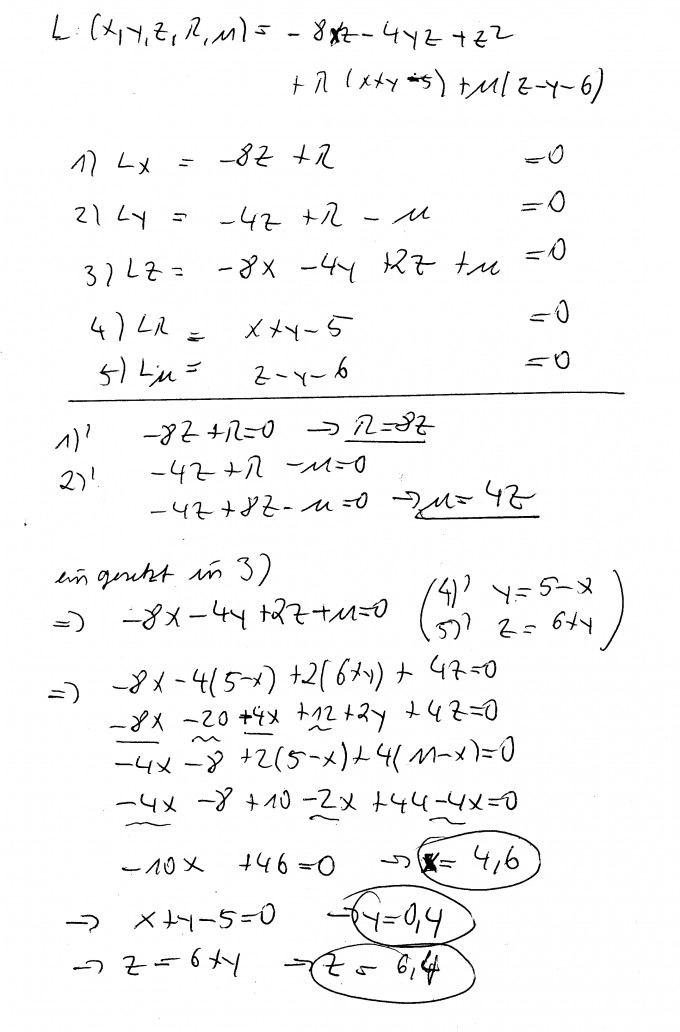 L: (x,y,z,λ,μ) = -8xz-4yz+z²
+λ(x+y-5)+μ(z-y-6)
1) Lx = -8z +λ =0
2) Ly = -4z +λ - μ =0
3) Lz = -8x -4y +2z +μ =0
4) Lλ = x+y-5 =0
5) Lμ = z-y-6 =0
1)' -8z+λ=0 → λ=8z
2)' -4z+λ-μ=0
-4z+8z-μ=0 → μ=4z
eingesetzt in 3)
⇒ -8x-4y+2z+μ=0 (4)' y=5-x
5)' z=6+y)
⇒ -8x-4(5-x)+2(6+y)+4z=0
-8x-20+4x+12+2y+4z=0
-4x-8+2(5-x)+4(11-x)=0
-4x-8+10-2x+44-4x=0
-10x+46=0 → x=4,6
→ x+y-5=0 → y=0,4
→ z=6+y → z=6,4